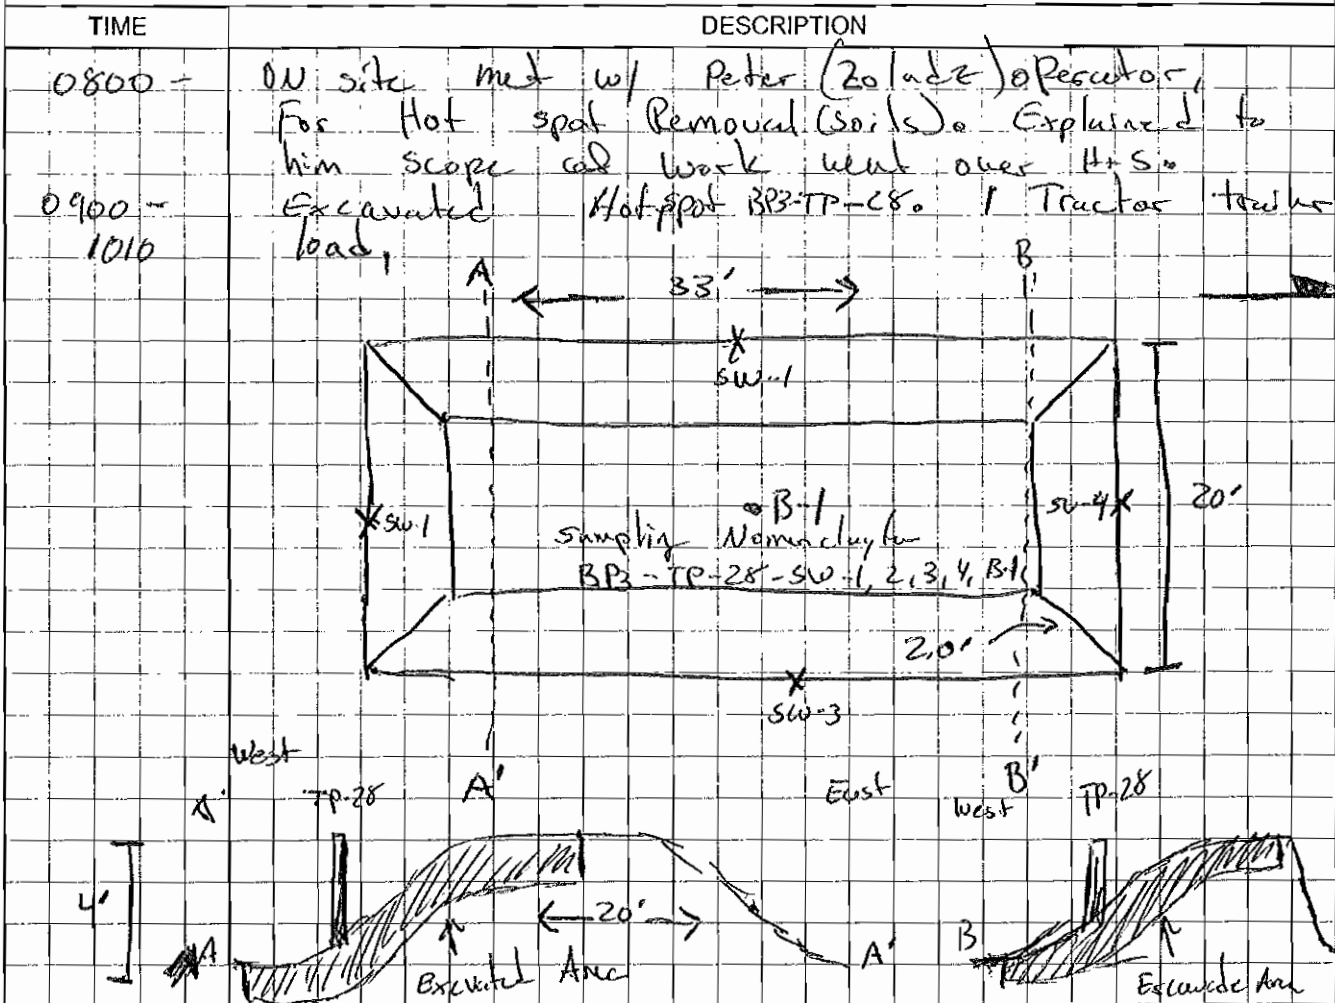 TIME DESCRIPTION
0800 - ON site met w/ Peter (Zoladz) operator,
For Hot spot Removal (Soils). Explained to
him scope of work went over H+S.
0900 - Excavated Hotspot BP3-TP-28. 1 Tractor trailer
1010 load,
A B
33'
SW-1
B-1
SW-1 SW-4 20'
Sampling Nomenclature
BP3-TP-28-SW-1, 2, 3, 4, B-1
2.0'
SW-3
West
A' East B'
TP-28 West TP-28
4' 20'
A A' B
Excavated Area Excavate Area